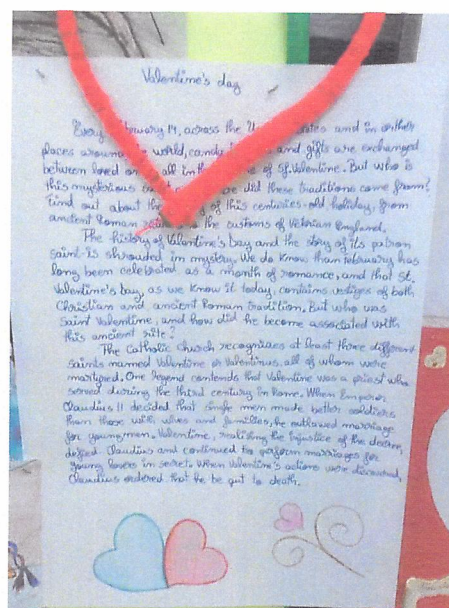 Valentine's day
Every February 14, across the United States and in other
places around the world, candy and gifts are exchanged
between loved ones, all in the name of St. Valentine. But who is
this mysterious did these traditions come from?
Find out about the of this centuries-old holiday, from
ancient Roman the customs of Victorian England.
The history of Valentine's Day and the story of its patron
saint is shrouded in mystery. We do know than february has
long been celebrated as a month of romance, and that St.
Valentine's Day, as we know it today, contains vestiges of both
Christian and ancient Roman tradition. But who was
Saint Valentine, and how did he become associated with
this ancient rite?
The Catholic church recognizes at least three different
saints named Valentine or Valentinus, all of whom were
martyred. One legend contends that Valentine was a priest who
served during the third century in Rome. When Emperor
Claudius II decided that single men made better soldiers
than those with wives and families, he outlawed marriage
for young men. Valentine, realizing the injustice of the decree,
defied Claudius and continued to perform marriages for
young lovers in secret. When Valentine's actions were discovered,
Claudius ordered that he be put to death.